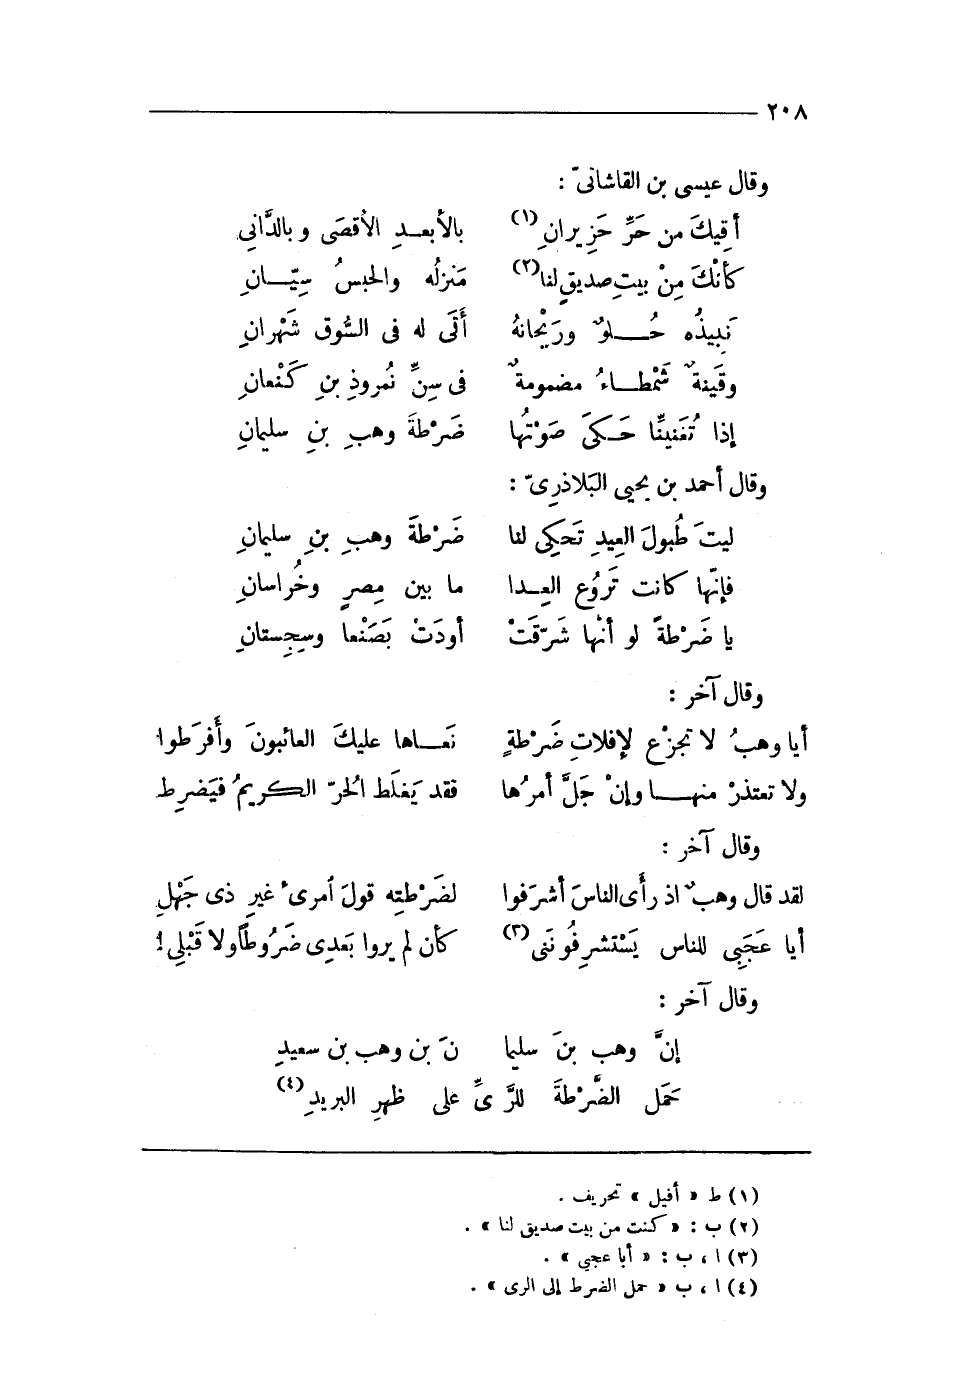 ٢٠٨
وقال عيسى بن القاشانىّ :
أقِيكَ من حَرِّ حَزِيرانِ (١) بالأبعــدِ الأقصَى وبالدَّانِى
كأنْكَ مِنْ بيتِ صديقٍ لنا (٢) مَنزلُه والحبسُ سِيّــانِ
نَبِيذُه حُــلوٌ ورَيْحانهُ أتَى له فى السُّوق شَهْرانِ
وقَينةٌ شَمْطــاءُ مضمومةٌ فى سِنِّ نُمروذِ بنِ كَنْعانِ
إذا تُغَنينَّا حَـكَى صَوْتُها ضَرْطةَ وهبِ بنِ سليمانِ
وقال أحمد بن يحيى البَلاذرِىّ :
ليتَ طُبولَ العِيدِ تَحكِى لنا ضَرْطةَ وهبِ بنِ سليمانِ
فإنّها كانت تَرُوُع العِـدا ما بين مِصرٍ وخُراسانِ
يا ضَرْطةً لو أنّها شَرّقَتْ أودَتْ بصَنْعا وسِجِستانِ
وقال آخر :
أيا وهبُ لا تجزَعْ لإفلاتِ ضَرْطةٍ نَعَــاها عليكَ العائبونَ وأَفرَطوا
ولا تعتذرْ منهــا وإنْ جَلَّ أمرُها فقد يَغلَط الحُرّ الكريمُ فيَضرِط
وقال آخر :
لقد قال وهبٌ اذ رأَى الناسَ أشرَفوا لضَرْطتِه قولَ أمرىءٍ غيرِ ذى جَهْلِ
أيا عَجَبِى للناس يَسْتشرِفُونَنى (٣) كأن لم يروا بَعدِى ضَرُوطاً ولا قَبْلِى !
وقال آخر :
إنَّ وهب بنَ سليما نَ بن وهب بن سعيدِ
حَمَل الضَّرْطةَ للرَّىِّ على ظهرِ البريدِ (٤)
(١) ط « أفيل » تحريف .
(٢) ب : « كنت من بيت صديق لنا » .
(٣) ا ، ب : « أبا عجبى » .
(٤) ا ، ب « حمل الضرط إلى الرى » .